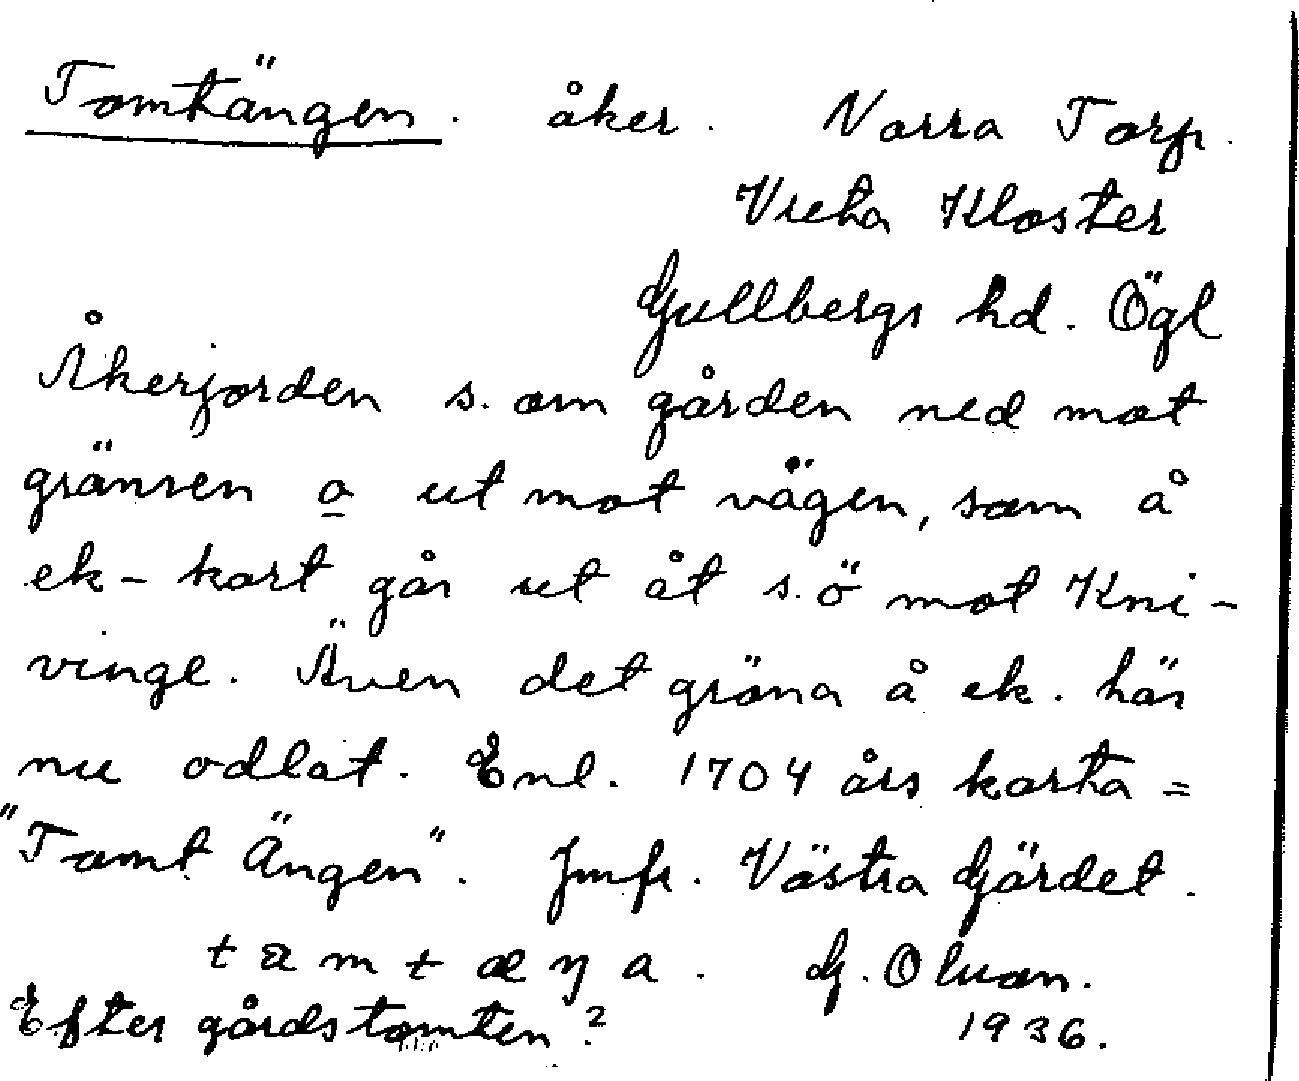 Tomtängen. åker. Norra Torp.
Vreta Kloster
Gullbergs hd. Ögl
Åkerjorden s. om gården ned mot
gränsen o ut mot vägen, som å
ek-kart går ut åt s.ö mot Kni-
vinge. Även det gröna å ek. här
nu odlat. Enl. 1704 års karta =
"Tomt Ängen". Jmfr. Västra Gärdet.
G. Olson.
Efter gårdstomten?
1936.